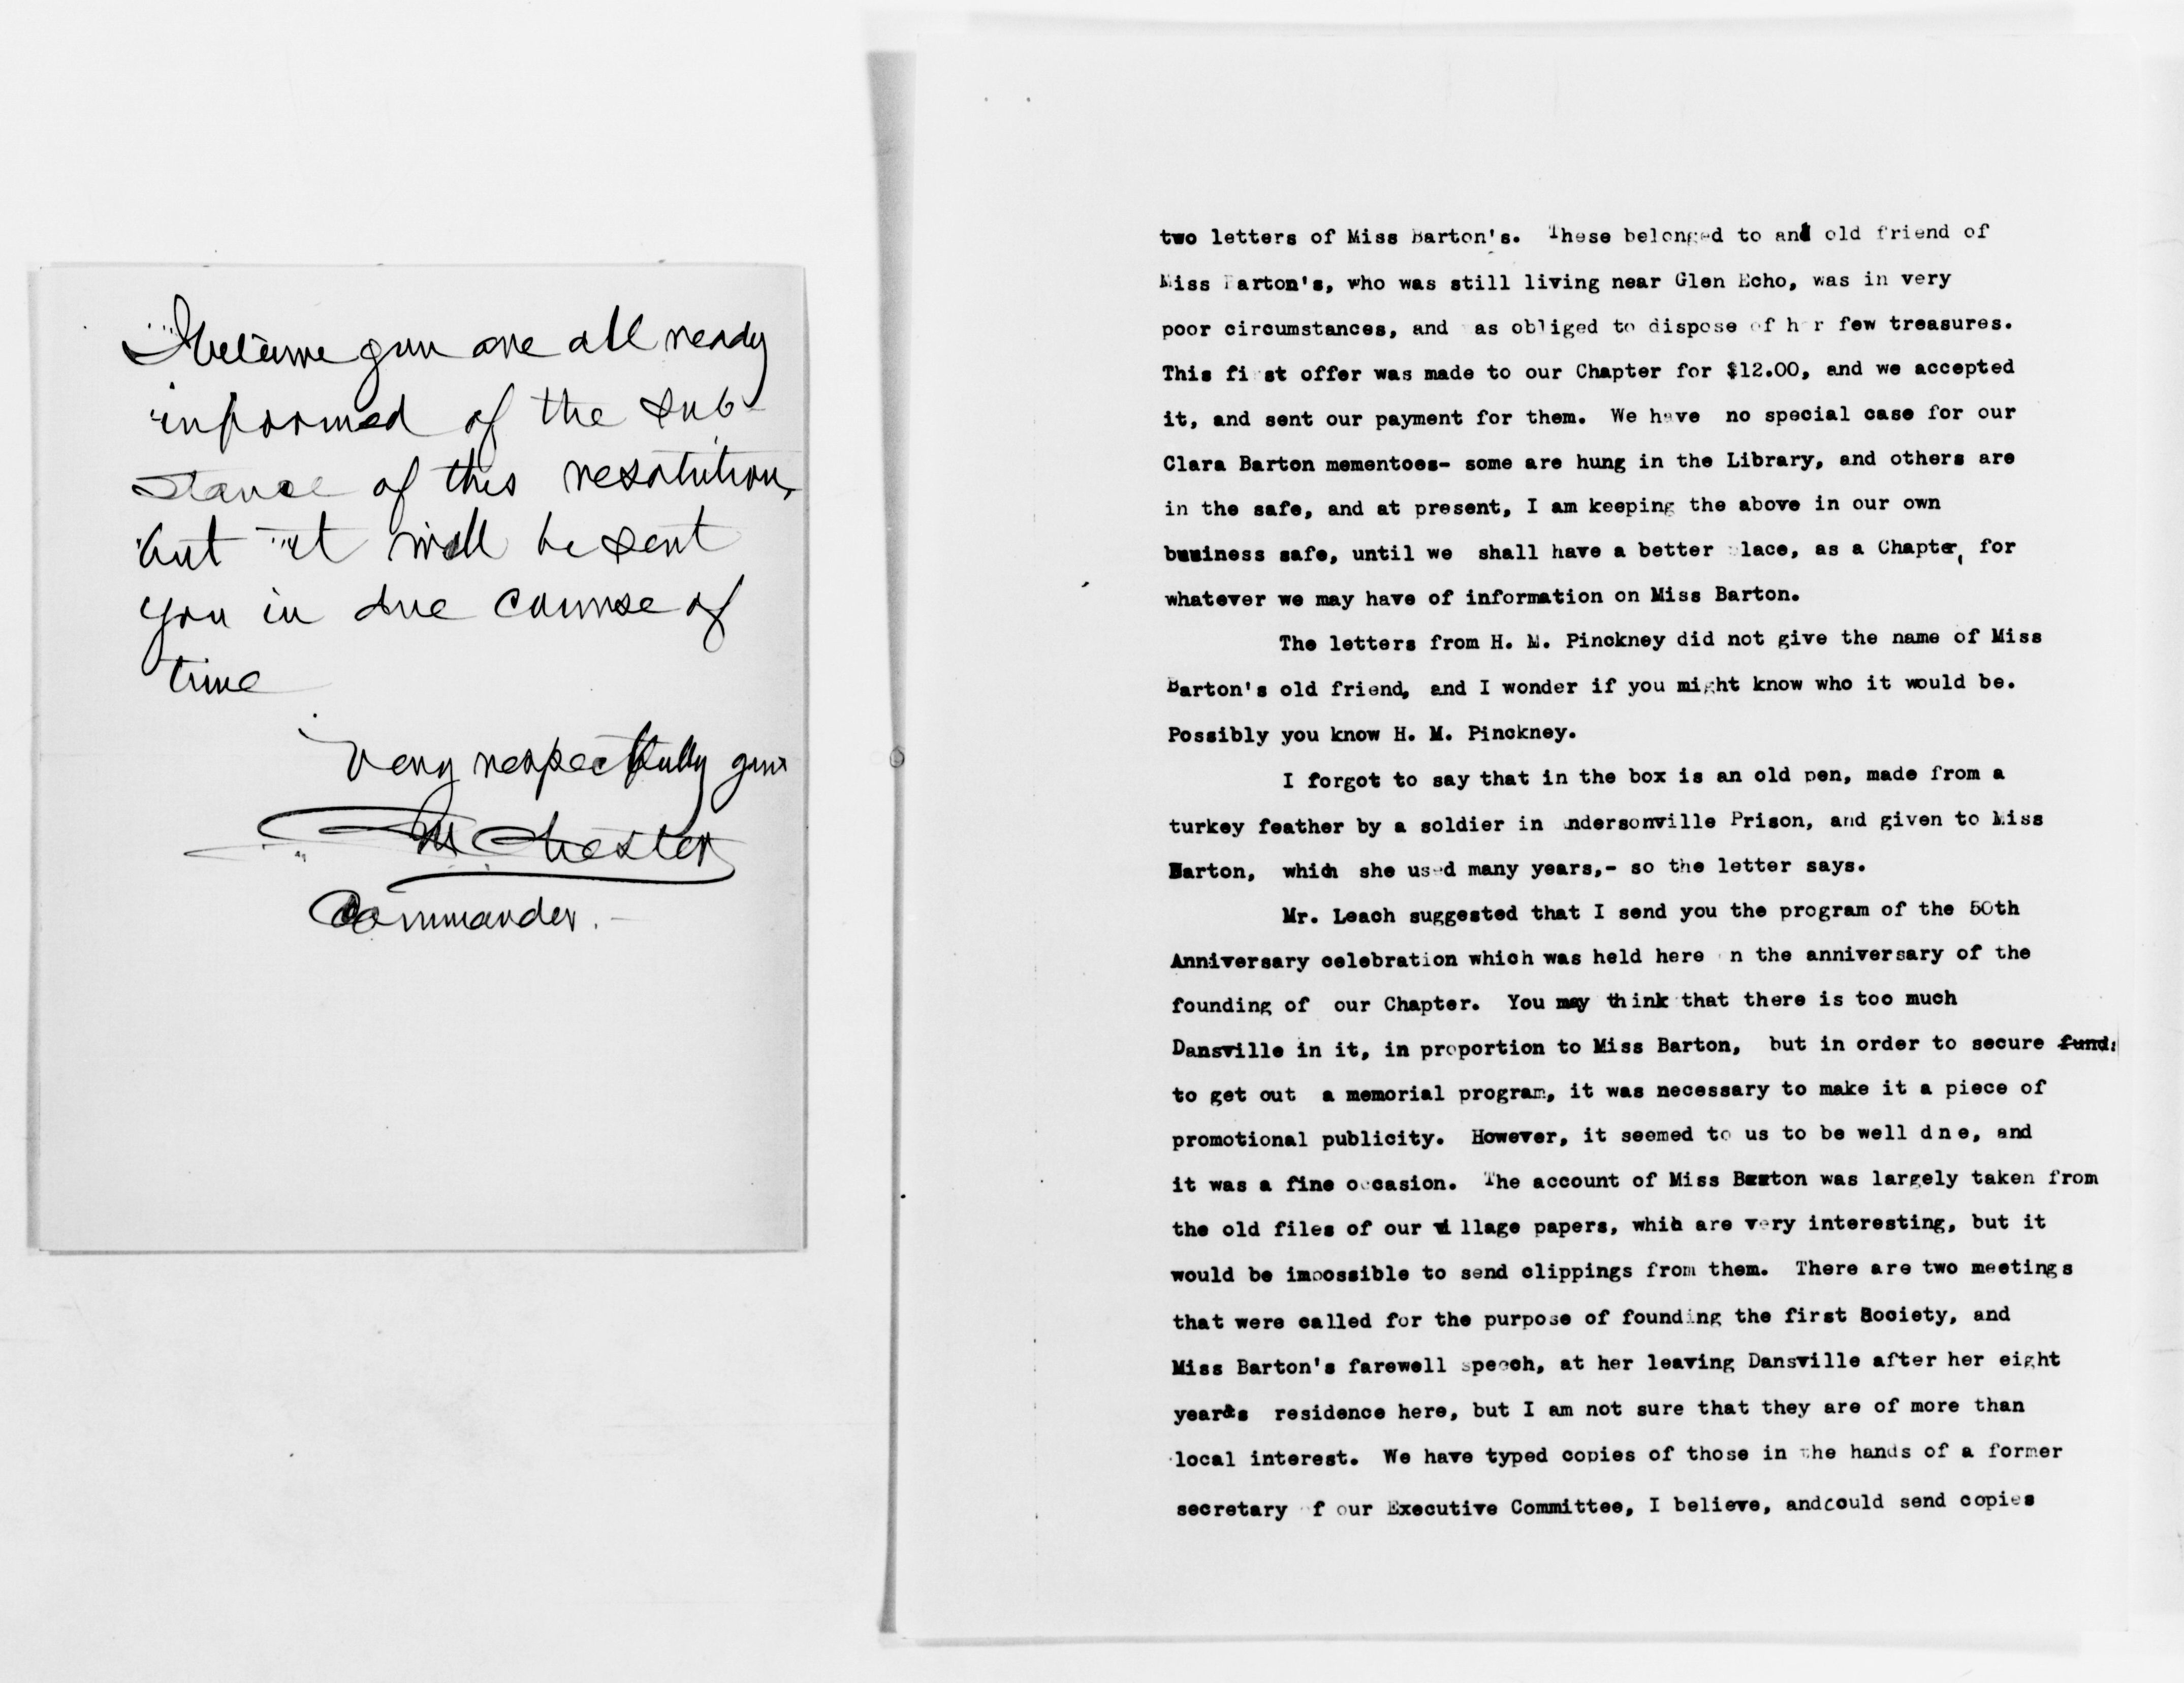 I beleive you are all ready
informed of the sub-
stance of this resolution,
but it will be sent
you in due course of
time
Very respectfully yours
Chester
Commander.
two letters of Miss Barton's. These belonged to and old friend of
Miss Barton's, who was still living near Glen Echo, was in very
poor circumstances, and as obliged to dispose of her few treasures.
This fi st offer was made to our Chapter for $12.00, and we accepted
it, and sent our payment for them. We have no special case for our
Clara Barton mementoes- some are hung in the Library, and others are
in the safe, and at present, I am keeping the above in our own
business safe, until we shall have a better place, as a Chapter, for
whatever we may have of information on Miss Barton.
The letters from H. M. Pinckney did not give the name of Miss
Barton's old friend, and I wonder if you might know who it would be.
Possibly you know H. M. Pinckney.
I forgot to say that in the box is an old pen, made from a
turkey feather by a soldier in Andersonville Prison, and given to Miss
Barton, which she used many years,- so the letter says.
Mr. Leach suggested that I send you the program of the 50th
Anniversary celebration which was held here on the anniversary of the
founding of our Chapter. You may think that there is too much
Dansville in it, in proportion to Miss Barton, but in order to secure fund:
to get out a memorial program, it was necessary to make it a piece of
promotional publicity. However, it seemed to us to be well dne, and
it was a fine occasion. The account of Miss Barton was largely taken from
the old files of our village papers, whih are very interesting, but it
would be impossible to send clippings from them. There are two meetings
that were called for the purpose of founding the first Society, and
Miss Barton's farewell speech, at her leaving Dansville after her eight
years residence here, but I am not sure that they are of more than
local interest. We have typed copies of those in the hands of a former
secretary of our Executive Committee, I believe, andcould send copies